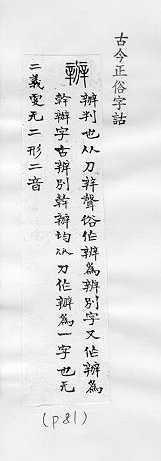 古今正俗字詁
辦
辦判也从刀辡聲俗作辨為辨別字又作辦為
幹辦字古辨別幹辦均从刀作辧為一字也无
二義更无二形二音
(p81)